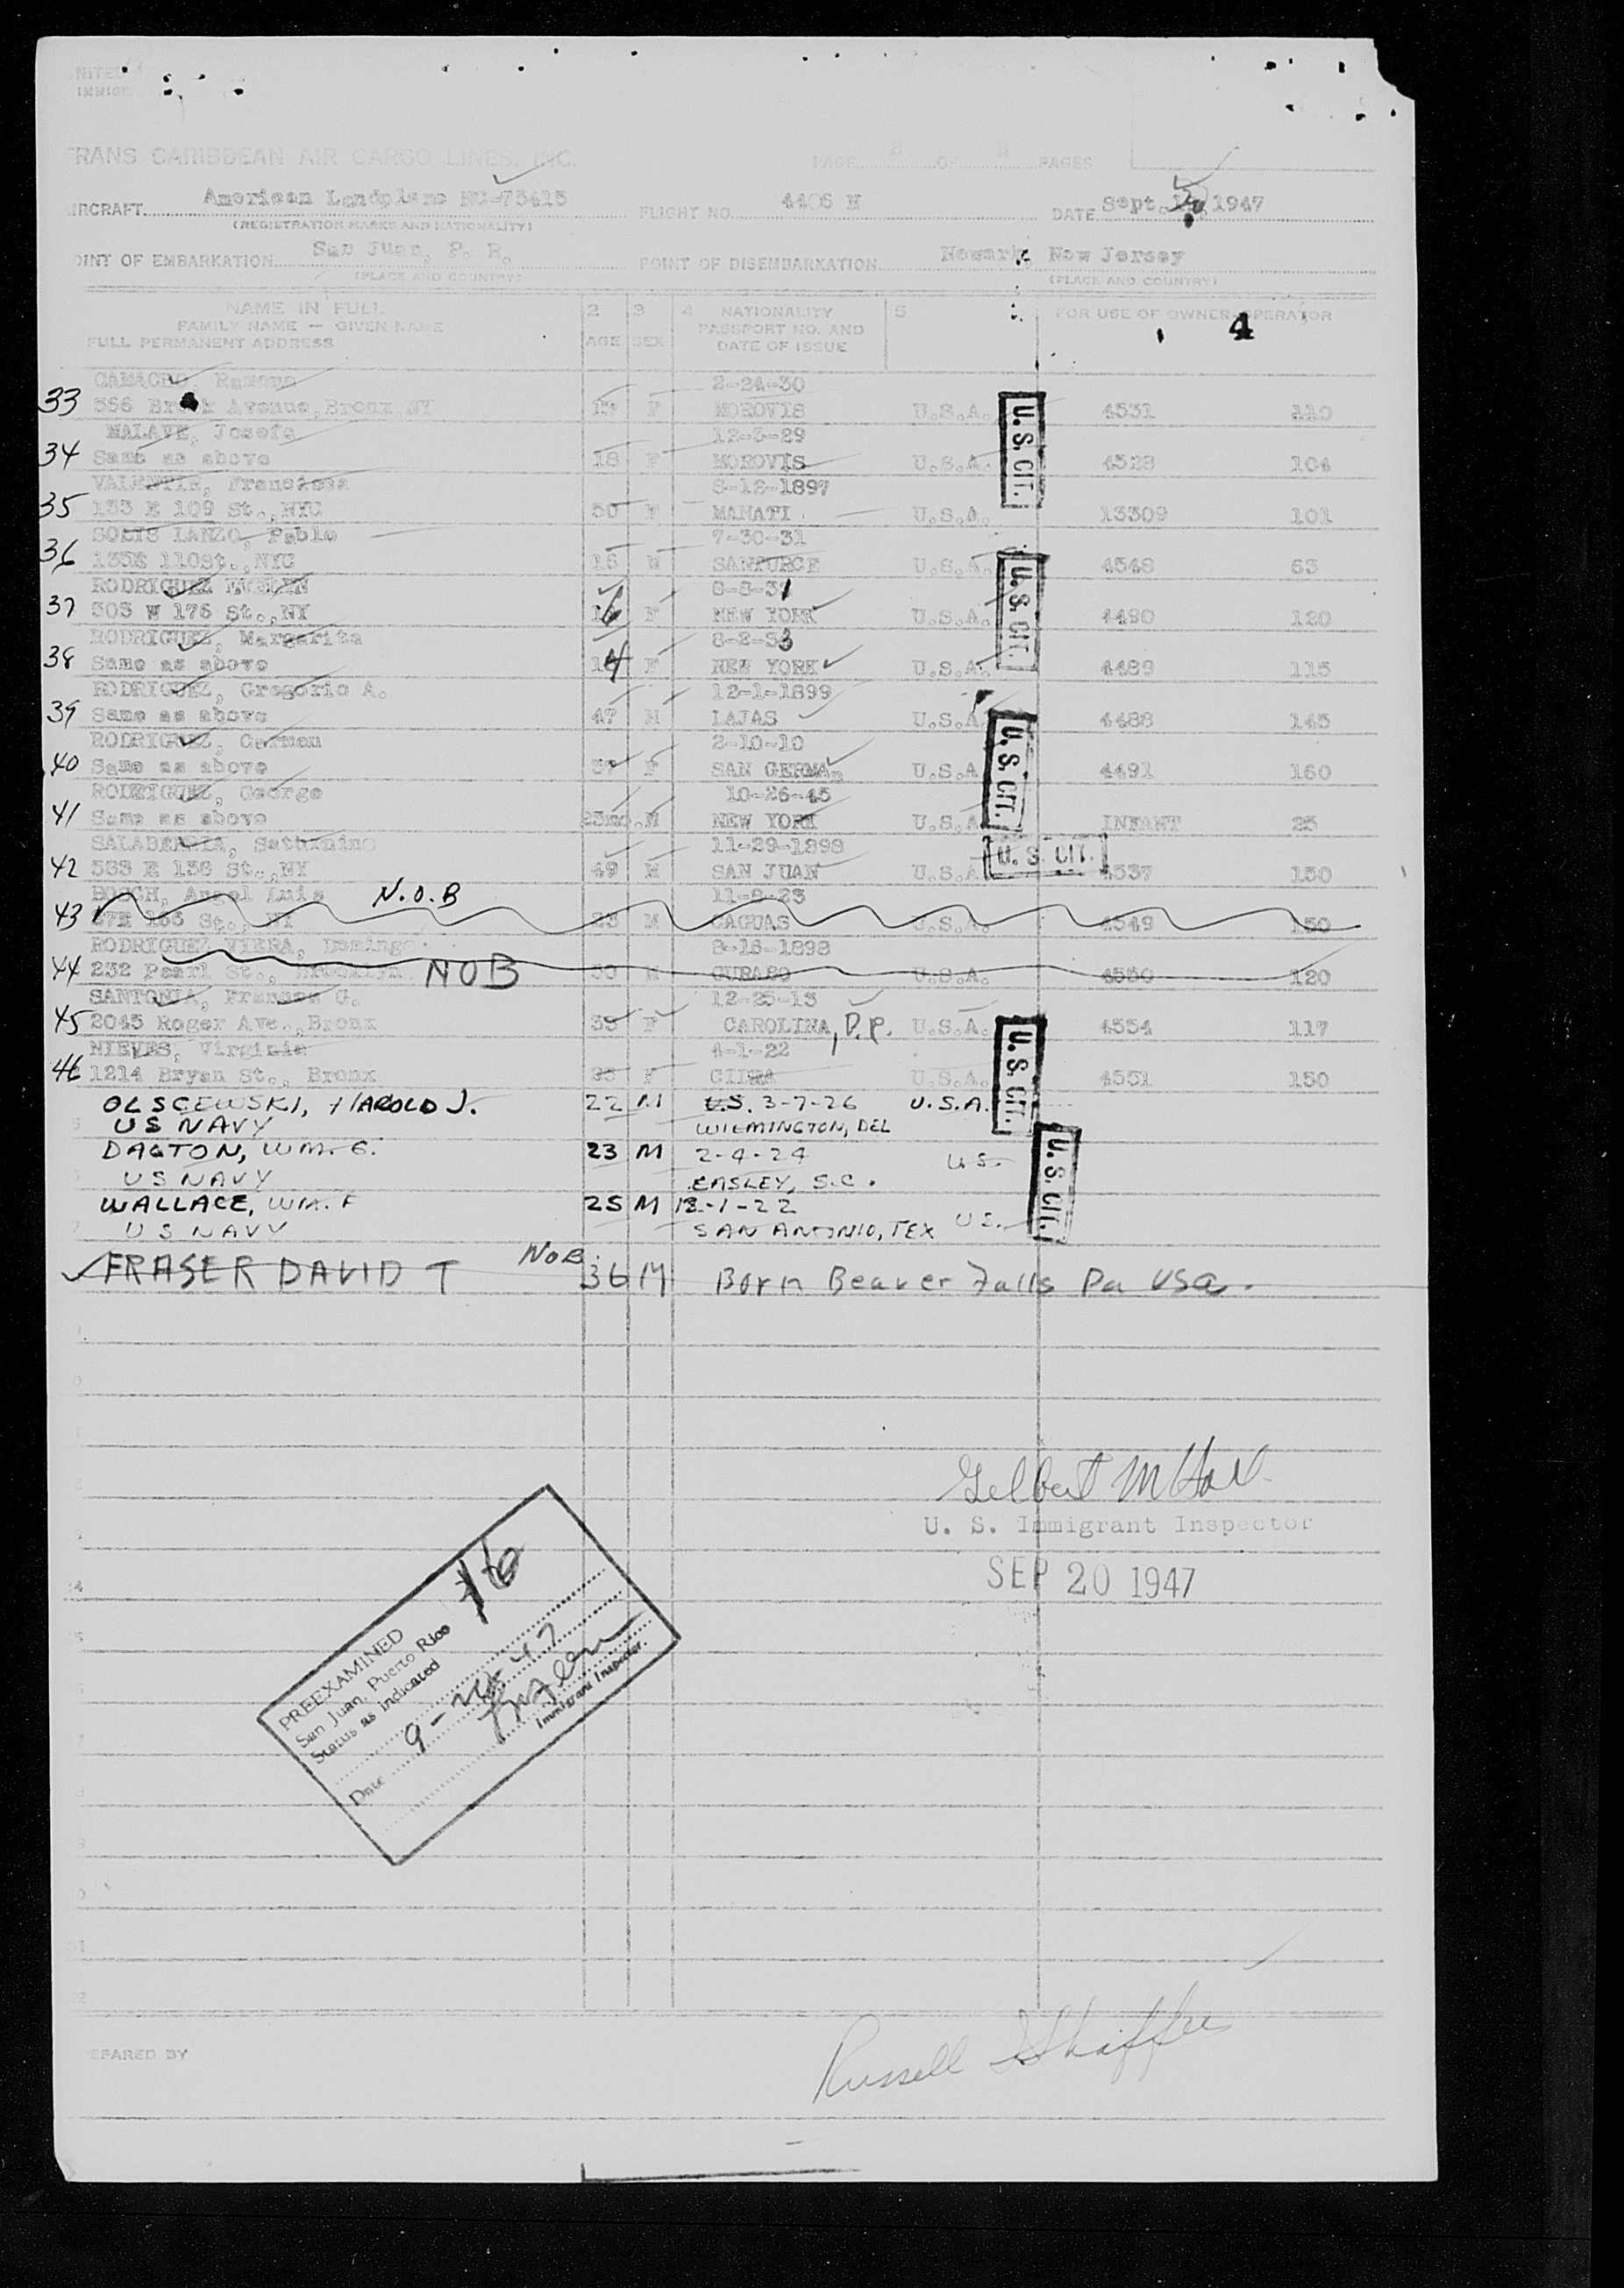 NITED
IMMIG
RANS CARIBBEAN AIR CARGO LINES, INC. PAGE OF PAGES
IRCRAFT American Landplane NC-73415 FLIGHT NO. 4406 N DATE Sept. 1947
(REGISTRATION MARKS AND NATIONALITY)
OINT OF EMBARKATION San Juan, P. R. POINT OF DISEMBARKATION Newark, New Jersey
(PLACE AND COUNTRY) (PLACE AND COUNTRY)
NAME IN FULL 2 3 4 NATIONALITY 5 FOR USE OF OWNER-OPERATOR
FAMILY NAME — GIVEN NAME PASSPORT NO. AND 4
FULL PERMANENT ADDRESS AGE SEX DATE OF ISSUE
CAMACHO, Ramona 2-24-30
33 356 Brook Avenue, Bronx NY F MOROVIS U.S.A. 4531 110
MALAVE, Josefa 12-3-29
34 Same as above 18 F MOROVIS U.S.A. 4528 104
U.S. CIT.
VALENTIN, Francisca 8-12-1897
35 133 E 109 St., NYC 50 F MANATI U.S.A. 13309 101
SOLIS LANZO, Pablo 7-30-31
36 135E 110St., NYC 16 M SANTURCE U.S.A. 4548 63
RODRIGUEZ 8-8-31
37 503 W 176 St., NY 16 F NEW YORK U.S.A. 4490 120
U.S. CIT.
RODRIGUEZ, Margarita 8-2-33
38 Same as above 14 F NEW YORK U.S.A. 4489 115
RODRIGUEZ, Gregorio A. 12-1-1899
39 Same as above 47 M LAJAS U.S.A 4488 145
RODRIGUEZ, Carmen 2-10-10
40 Same as above 37 F SAN GERMAn U.S.A 4491 160
U.S CIT.
RODRIGUEZ, George 10-26-45
41 Same as above 23mo. M NEW YORK U.S.A INFANT 25
Saturnino 11-29-1898
42 563 E 138 St., NY 49 M SAN JUAN U.S.A U. S. CIT. 4537 150
BOSCH, Angel Luis N.O.B 11-8-23
43 St., NY 23 M CAGUAS U.S.A. 4549 150
RODRIGUEZ VIERA, Domingo 8-16-1898
44 232 Pearl St., Brooklyn NOB 50 M U.S.A. 4550 120
SANTONIA, G. 12-25-13
45 2045 Roger Ave., Bronx 33 F CAROLINA, P.R. U.S.A. 4554 117
NIEVES, Virginia 4-1-22
46 1214 Bryan St., Bronx F CIDRA U.S.A. 4551 150
U.S CIT.
OLSCEWSKI, HAROLD J. 22 M U.S. 3-7-26 U.S.A.
US NAVY WILMINGTON, DEL
DAGTON, WM. G. 23 M 2-4-24 U.S.
US NAVY EASLEY, S.C.
U.S CIT.
WALLACE, WM. F 25 M -1-22
US NAVY SAN ANTONIO, TEX U.S.
FRASER DAVID T NOB 36 M Born Beaver Falls Pa USa.
Gelbert
U. S. Immigrant Inspector
SEP 20 1947
PREEXAMINED 16
San Juan, Puerto Rico
Status as indicated
Date 9-20-47
Immigrant Inspector.
EPARED BY
Russell Shaffer